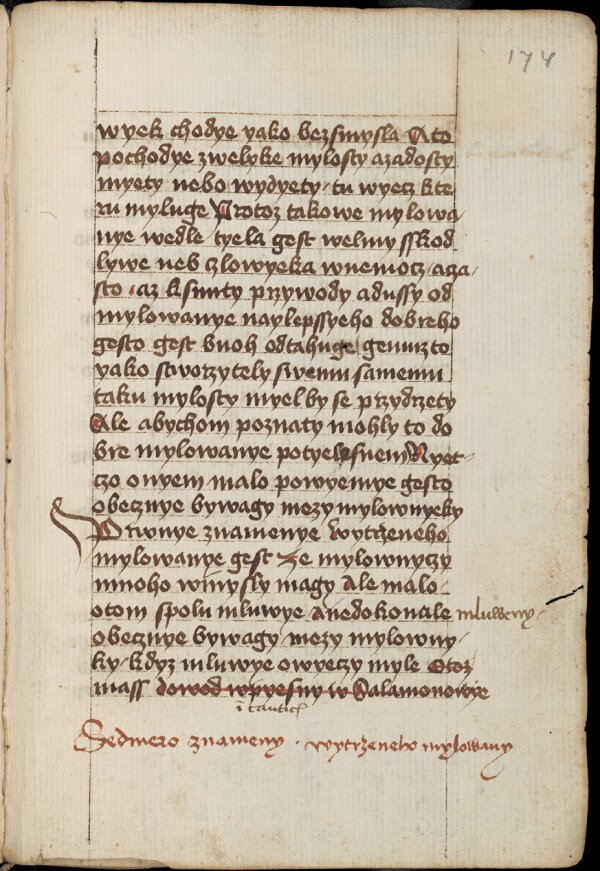 174
wyek chodye yako bezsmysla A to
pochodye zwelyke mylosty azadosty
myety nebo wydyety tu wyecz kte
ru myluge Protoz takowe mylowa
nye wedle tyela gest welmy sskod
lywe neb czlowyeka wnemocz aza
sto az ksmrty przywody adussy od
mylowanye naylepssyeho dobreho
gesto gest buoh odtahuge genuzto
yako stworzytely swemu samemu
taku mylosty myel by se przydrzety
Ale abychom poznaty mohly to do
bre mylowanye potyelesnem Nyet
czo onyem malo powyemye gesto
obecznye bywagy mezy mylownyky
Prwnye znamenye wytrzeneho
mylowanye gest Ze mylownyczy
mnoho wimysly magy Ale malo
otom spolu mluwye Anedokonale mluweny
obecznye bywagy mezy mylowny
ky kdyz mluwye owyeczy myle Otoz
mass dowod wpyesny w Salamonowye
i cantic
Sedmero znameny wytrzeneho mylowany